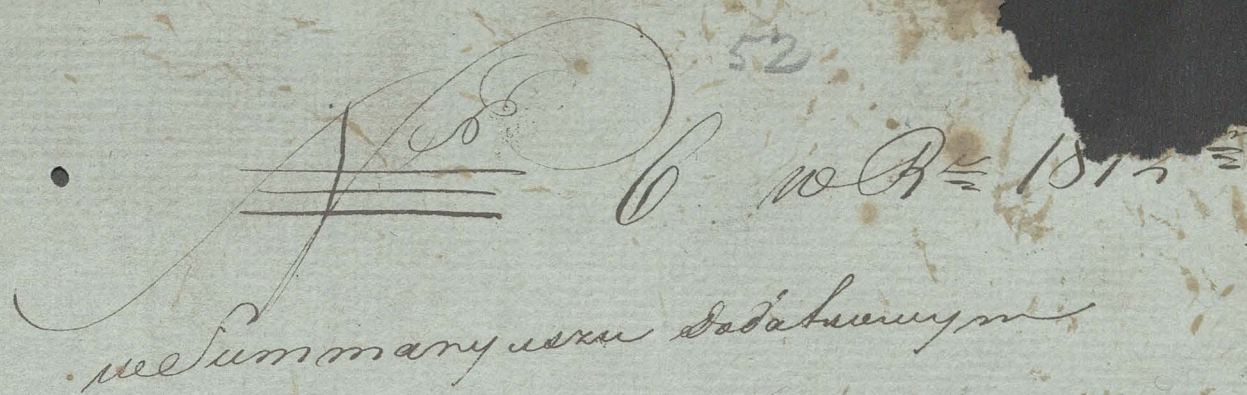 52
N 6 w Rᵘ 181
we Summaryuszu dodatkowym